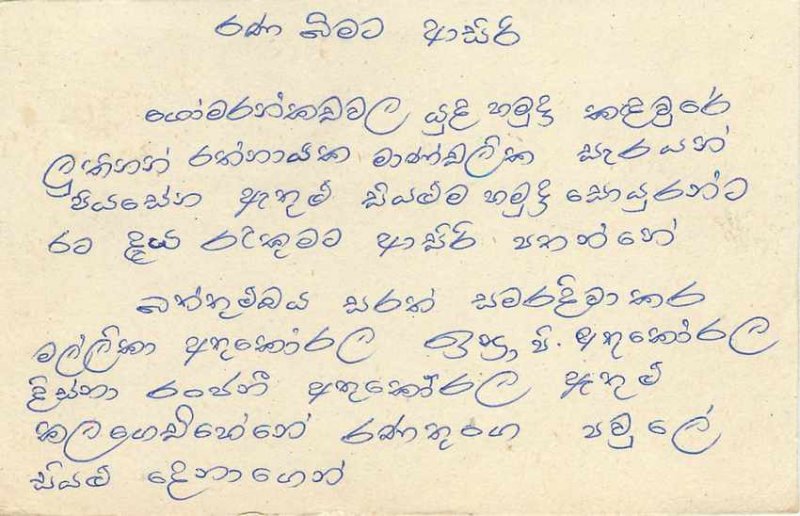 රණ බිමට ආසිරි
ගෝමරන්කඩවල යුද හමුදා කඳවුරේ
ලුතිනන් රත්නායක මාණ්ඩලික සැරයන්
පියසේන ඇතුළු සියළුම හමුදා සොයුරන්ට
රට දැය රැකුමට ආසිරි පතන්නේ
බත්තුම්බය සරත් සමරදිවාකර
මල්ලිකා අතුකෝරල පී. අතුකෝරල
දිස්නා රංජනී අතුකෝරල ඇතුළු
කලගෙඩිහේනේ රණතුංග පවුලේ
සියළු දෙනාගෙන්